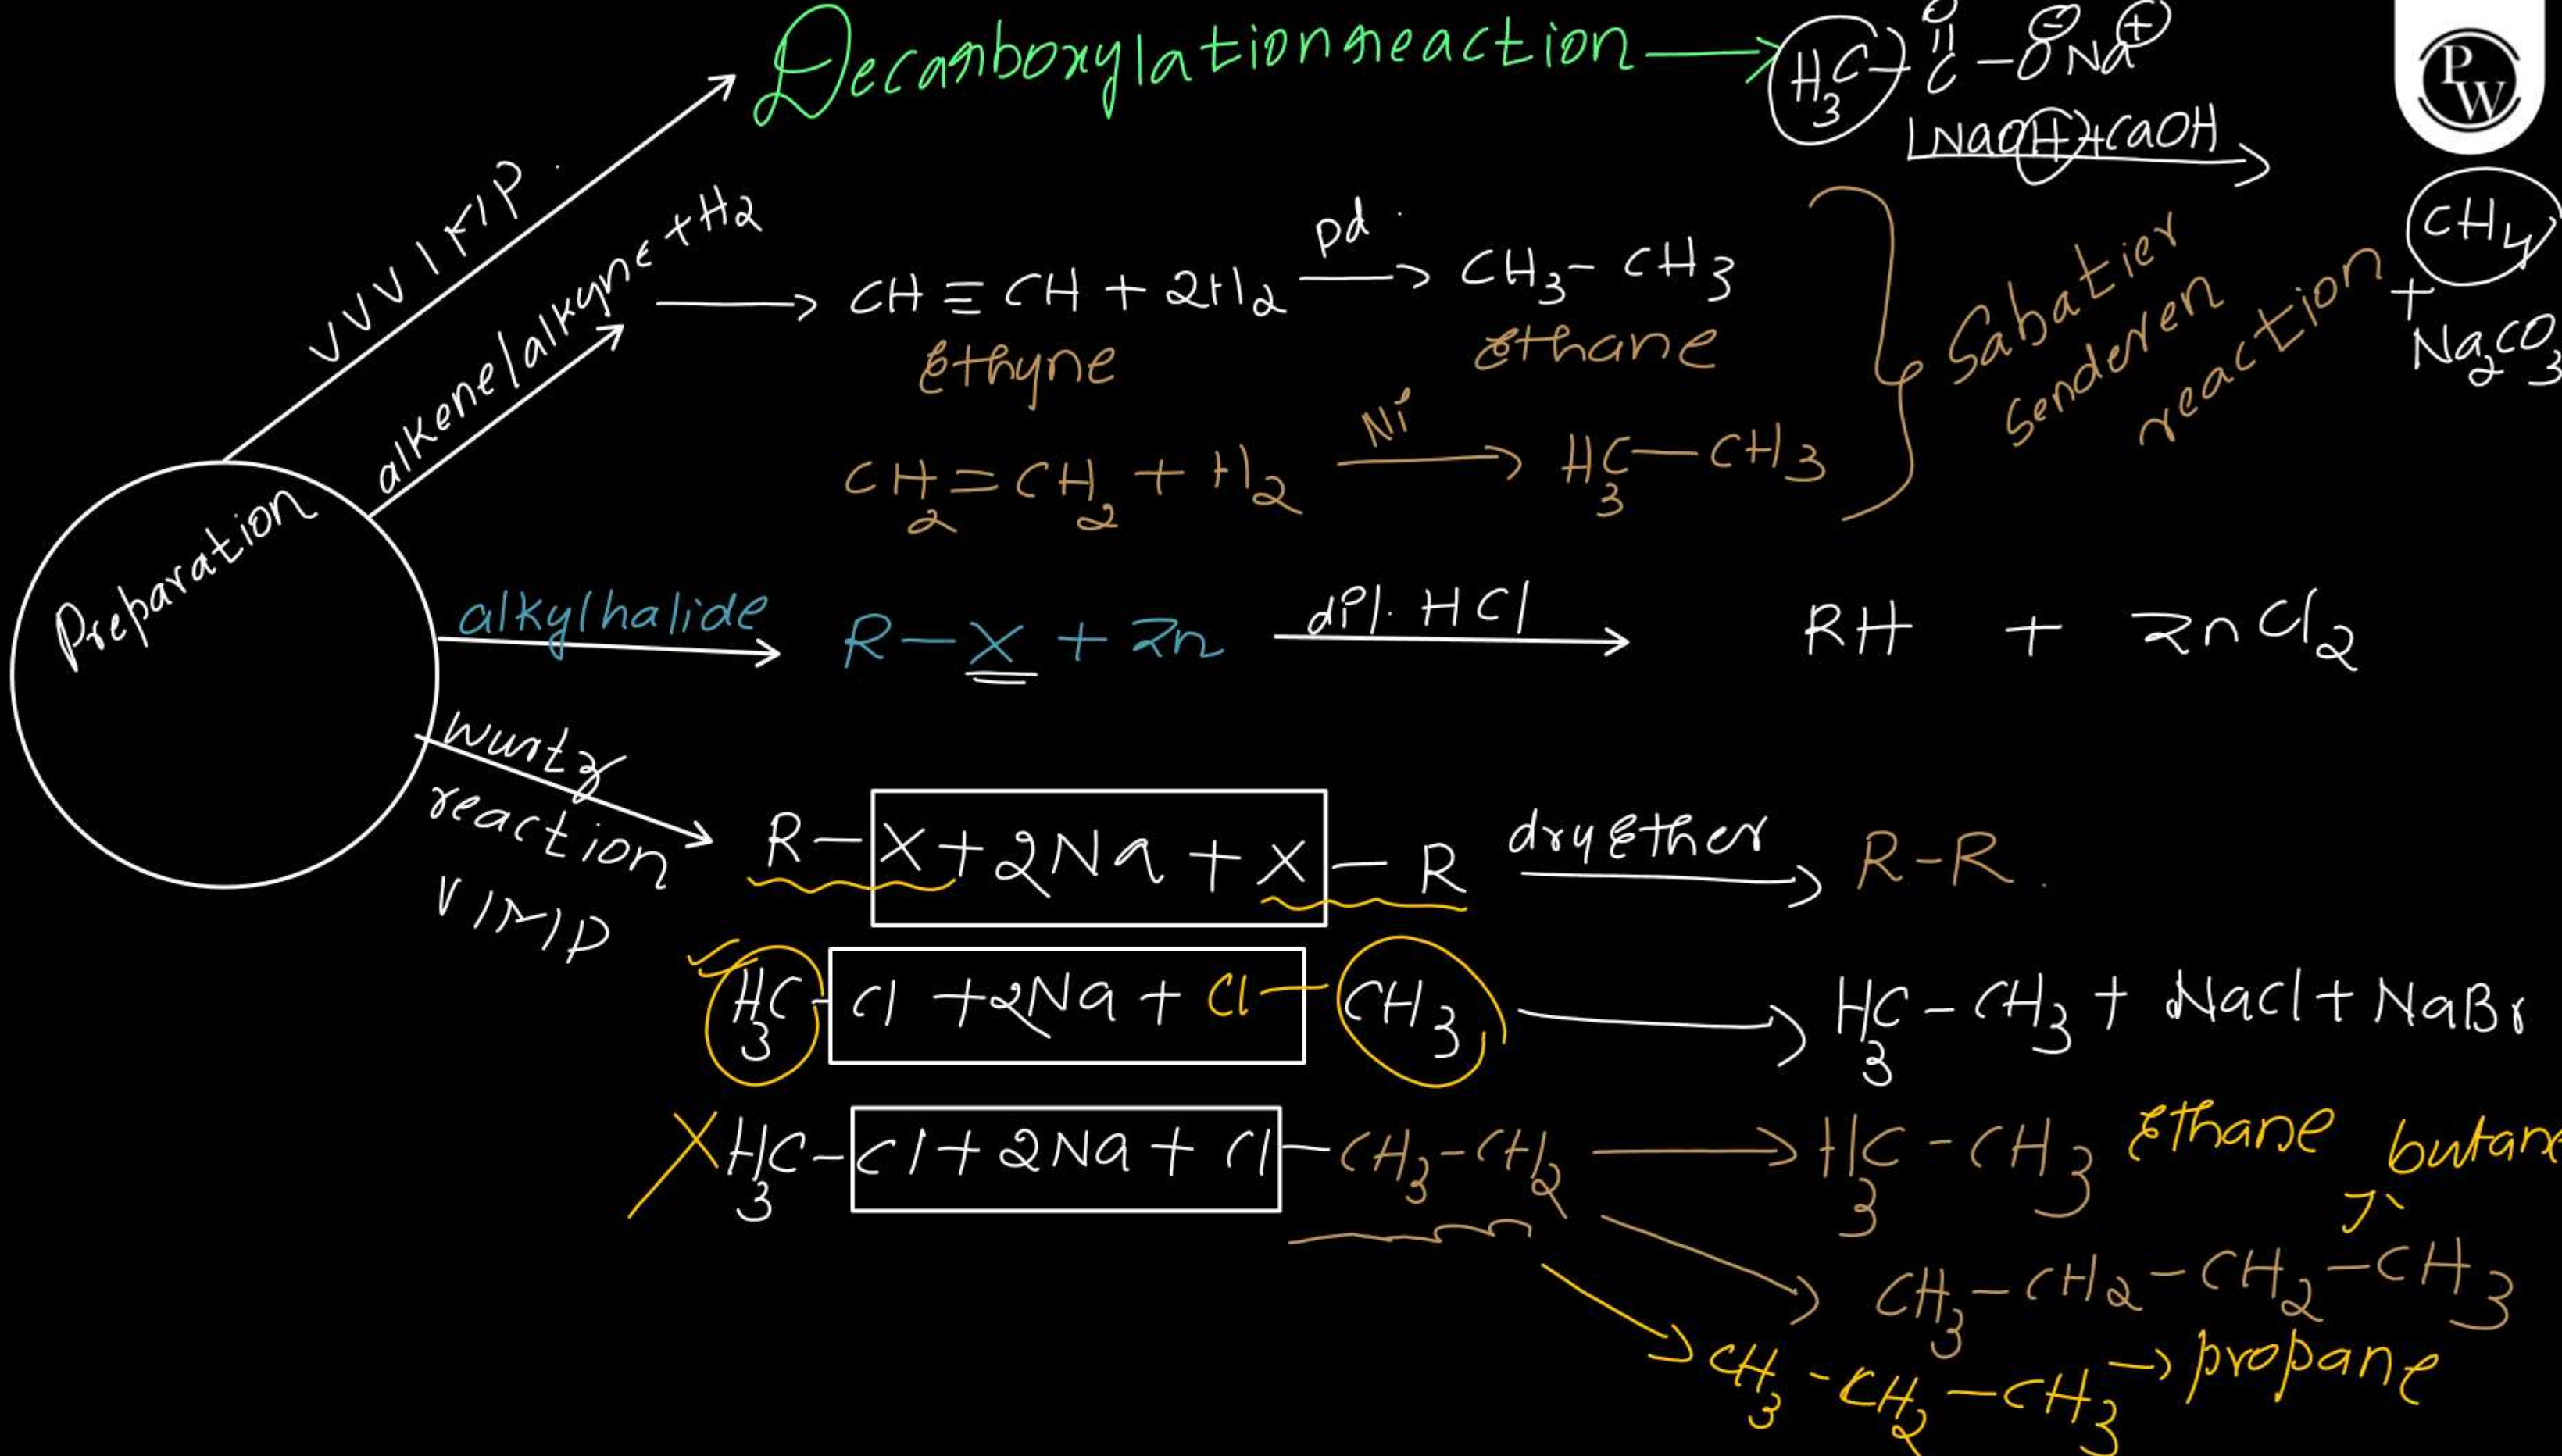 Decarboxylation reaction → H3C-C(=O)-O⊖Na⊕
NaOH+CaOH
→ CH4
+
Na2CO3
PW
alkene/alkyne + H2
→ CH≡CH + 2H2 →(Pd) CH3-CH3
Ethyne
Ethane
CH2=CH2 + H2 →(Ni) H3C-CH3
Sabatier
senderen
reaction
Preparation
alkylhalide R-X + Zn →(dil. HCl) RH + ZnCl2
Wurtz
reaction
VIMP
R-X + 2Na + X-R →(dry Ether) R-R.
H3C-Cl + 2Na + Cl-CH3 → H3C-CH3 + NaCl + NaBr
X H3C-Cl + 2Na + Cl-CH3-CH2 → H3C-CH3 Ethane
butane
→ CH3-CH2-CH2-CH3
→ CH3-CH2-CH3 → propane